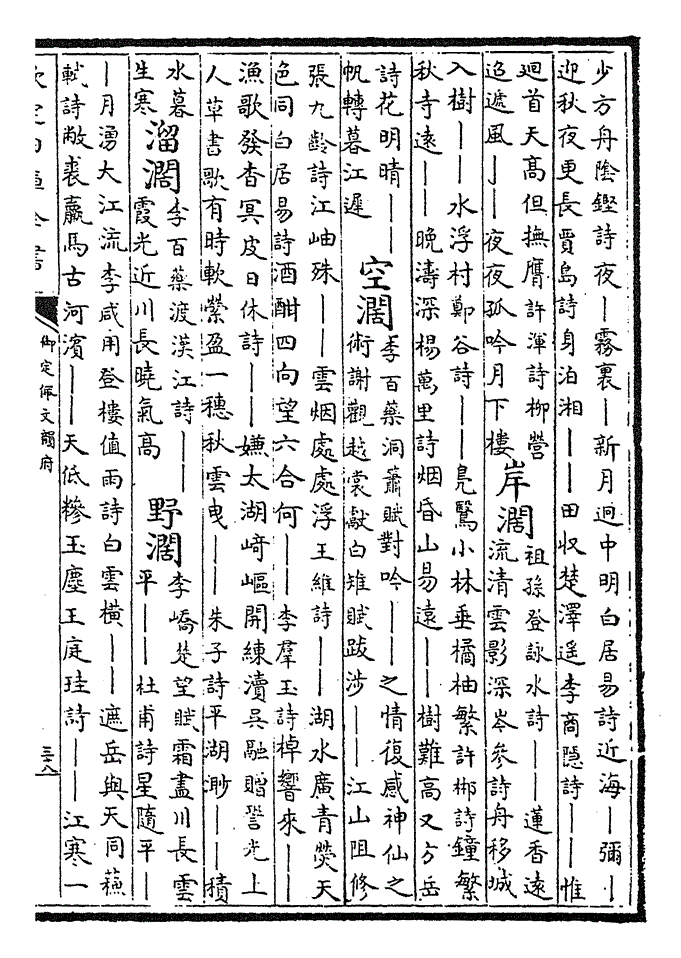 少方舟陰鏗詩夜｜霧裏｜新月迥中明白居易詩近海｜彌｜
迎秋夜更長賈島詩身泊湘｜｜田收楚澤遥李商隐詩｜｜惟
迴首天髙但撫膺許渾詩柳營
迢遞風｜｜夜夜孤吟月下樓
岸濶
祖孫登詠水詩｜｜蓮香遠
流清雲影深岑參詩舟移城
入樹｜｜水浮村鄭谷詩｜｜鳬鷖小林垂橘柚繁許郴詩鐘繁
秋寺遠｜｜晚濤深楊萬里詩烟昏山易遠｜｜樹難高又方岳
詩花明晴｜｜
帆轉暮江遲
空濶
李百藥洞簫賦對吟｜｜之情復感神仙之
術謝觀越裳獻白雉賦跋涉｜｜江山阻修
張九齡詩江岫殊｜｜雲烟處處浮王維詩｜｜湖水廣青熒天
色同白居易詩酒酣四向望六合何｜｜李羣玉詩棹響來｜｜
漁歌發杳冥皮日休詩｜｜嫌太湖﨑嶇開練瀆吳融贈䛒光上
人草書歌有時軟縈盈一穗秋雲曳｜｜朱子詩平湖渺｜｜積
水暮
生寒
溜濶
李百藥渡漢江詩｜｜
霞光近川長曉氣髙
野濶
李嶠楚望賦霜盡川長雲
平｜｜杜甫詩星隨平｜
｜月湧大江流李咸用登樓值雨詩白雲横｜｜遮岳與天同蘇
軾詩敝裘羸馬古河濱｜｜天低糝玉塵王庭珪詩｜｜江寒一
欽定四庫全書
御定佩文韻府
三十八